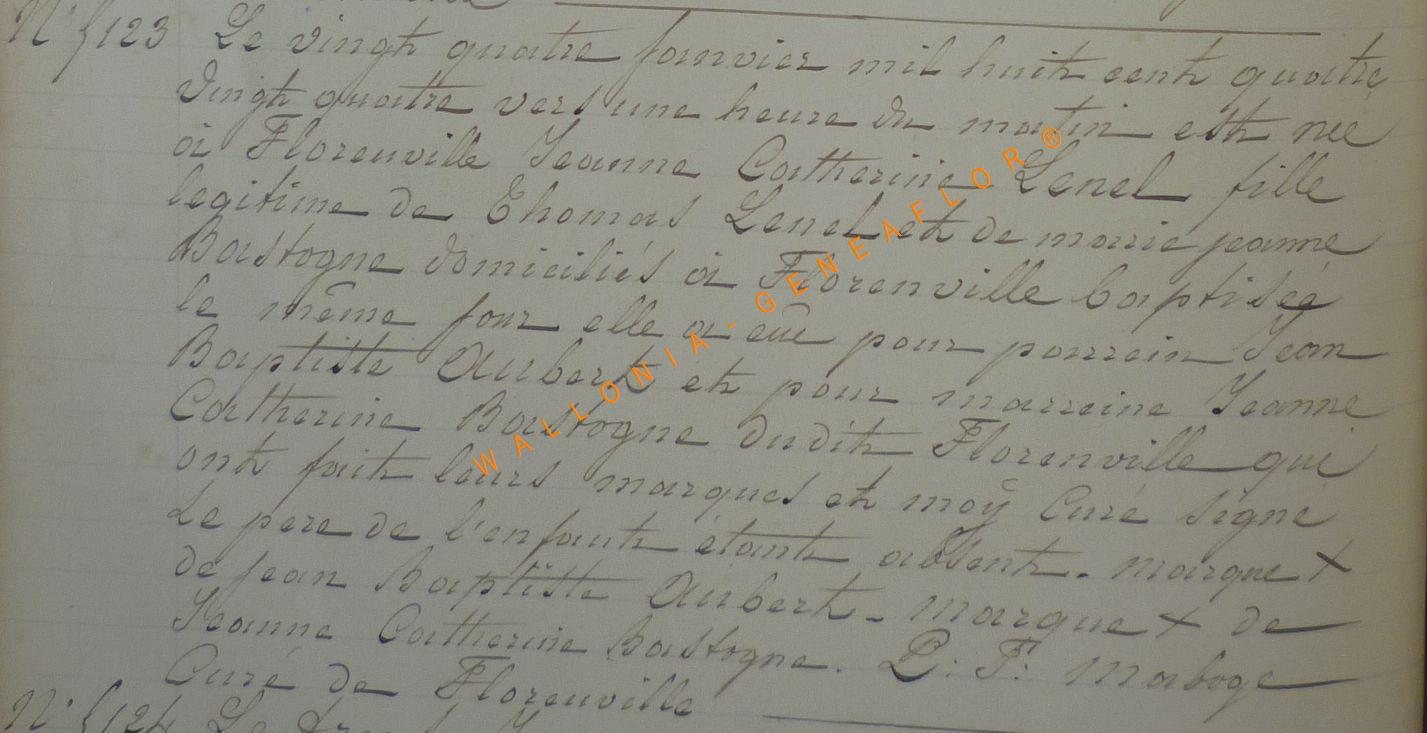 N° 5123 Le vingt quatre janvier mil huit cent quatre
vingt quatre vers une heure du matin est nee
à Florenville Jeanne Catherine Lenel fille
legitime de Thomas Lenel et de marie jeanne
Bastogne domiciliés à Florenville baptisée
le même jour elle a eüe pour parrein Jean
Baptiste Aubert et pour marreine Jeanne
Catherine Bastogne dudit Florenville qui
ont fait leurs marques et moÿ Curé signe
Le pere de l'enfant étant absent. marque +
de jean Baptiste Aubert - marque + de
Jeanne Catherine Bastogne. P: F: Maboge
Curé de Florenville
N° 5124 Le
WALLONIA. GENEAFLOR®